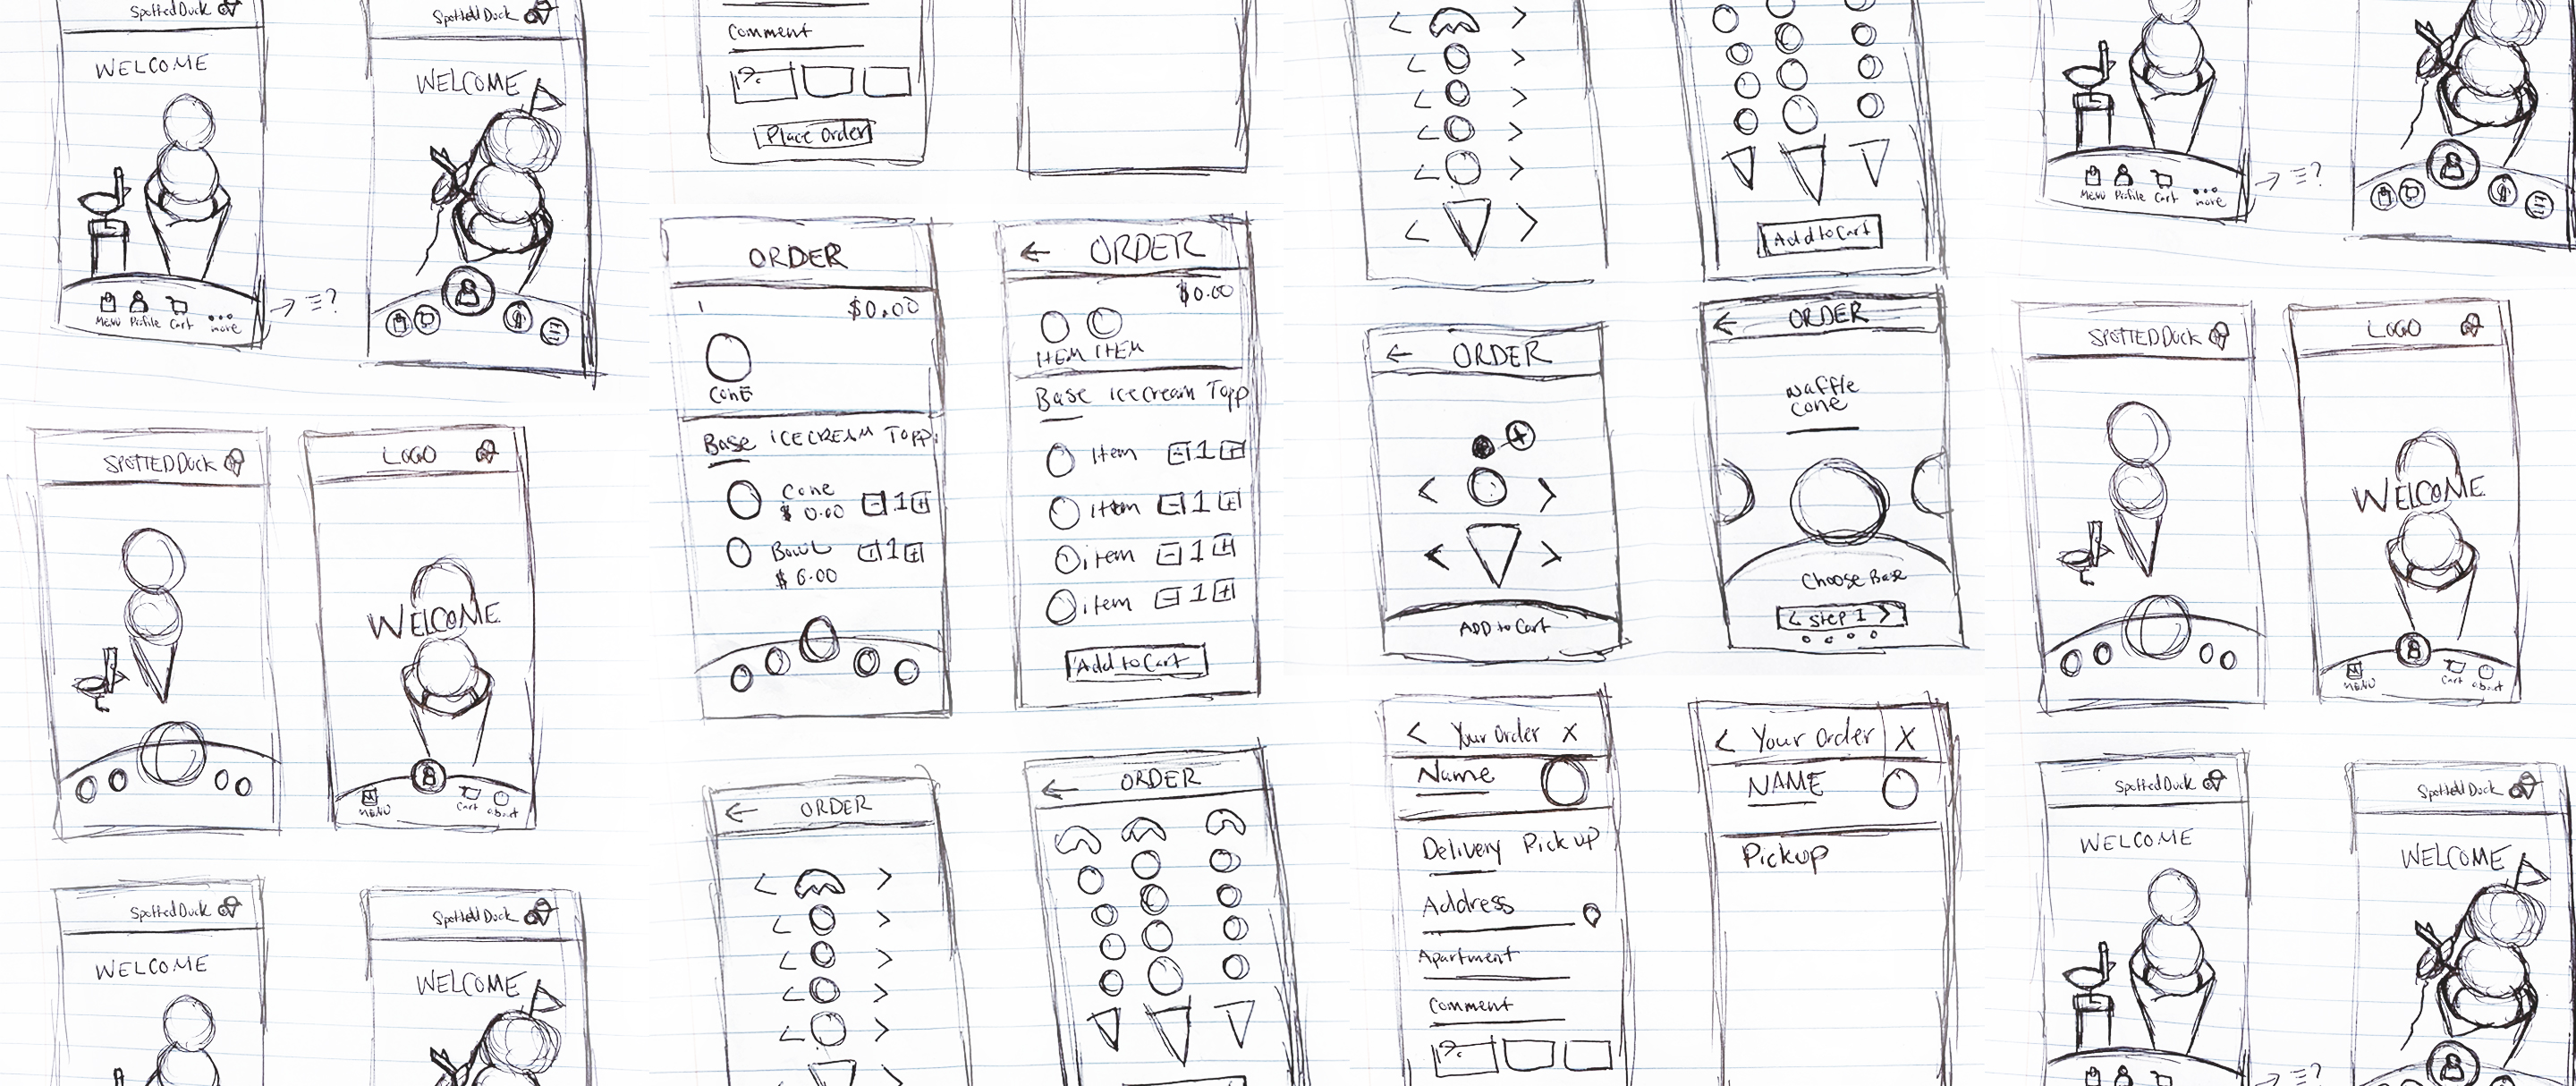 SpottedDuck
WELCOME
Menu Profile Cart more
→ ≡?
SpottedDuck
WELCOME
SPOTTEDDUCK
LOGO
WELCOME
MENU
Cart
about
SpottedDuck
WELCOME
SpottedDuck
WELCOME
Comment
Place Order
ORDER
1
$0.00
Cone
Base ICECREAM TOPP.
Cone
$ 0.00
- 1 +
Bowl
- 1 +
$ 6.00
← ORDER
$0.00
ITEM ITEM
Base Icecream Topp
Item - 1 +
item - 1 +
item - 1 +
item - 1 +
Add to Cart
← ORDER
< >
< >
< >
< >
< >
← ORDER
< >
< >
< >
< >
< >
< >
Add to Cart
← ORDER
+
< >
< >
ADD to Cart
← ORDER
waffle
cone
Choose Base
< Step 1 >
< Your Order X
Name
Delivery Pick up
Address
Apartment
Comment
< Your Order X
NAME
Pickup
Menu Profile Cart more
→ ≡?
SPOTTEDDUCK
LOGO
WELCOME
MENU
Cart
about
SpottedDuck
WELCOME
SpottedDuck
WELCOME
→ ≡?